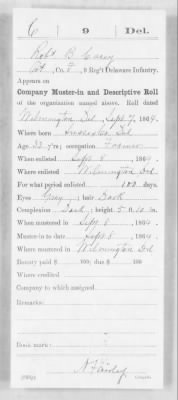 C | 9 | Del.
Robt B. Carey
Co. F, 9 Reg't Delaware Infantry.
Appears on
Company Muster-in and Descriptive Roll
of the organization named above. Roll dated
Wilmington Del Sept 7, 1864.
Where born Del
Age 33 y'rs; occupation Farmer
When enlisted Sept 8, 1864.
Where enlisted Wilmington Del
For what period enlisted 100 days.
Eyes Gray; hair Dark
Complexion Dark; height 5 ft. 10 in.
When mustered in Sept 8, 1864.
Muster-in to date Sept 8, 1864.
Where mustered in Wilmington Del
Bounty paid $ 100; due $ 100
Where credited
Company to which assigned
Remarks:
Book mark:
Copyist.